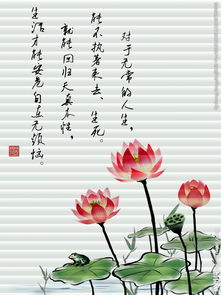 对于无常的人生，
能不执著来去、生死。
就能回归天真本性，
生活才能安息自在无烦恼。